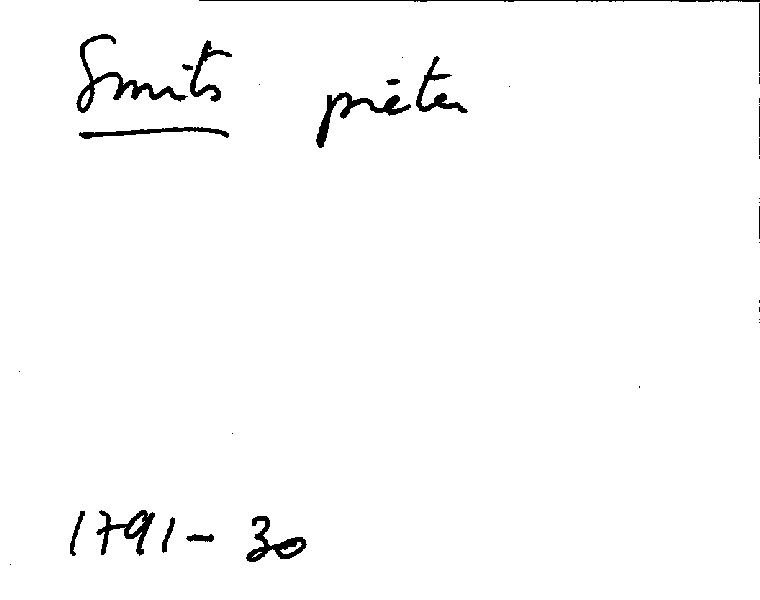 Smits pieter
1791 - 30